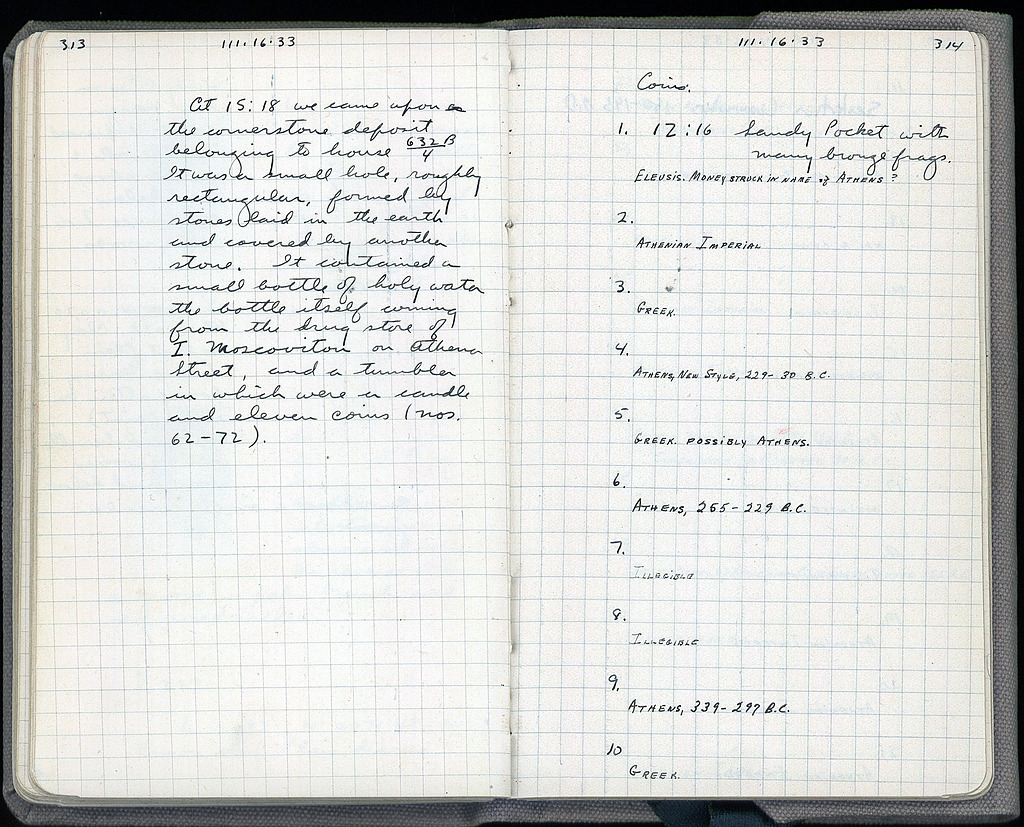 313
111·16·33
At 15:18 we came upon
the cornerstone deposit
belonging to house 632B/4
It was a small hole, roughly
rectangular, formed by
stones laid in the earth
and covered by another
stone. It contained a
small bottle of holy water
the bottle itself coming
from the drug store of
I. Moscoviton on Athena
Street, and a tumbler
in which were a candle
and eleven coins (nos.
62-72).
111·16·33
314
Coins.
1. 12:16 Sandy Pocket with
many bronze frags.
ELEUSIS. MONEY STRUCK IN NAME of ATHENS?
2.
ATHENIAN IMPERIAL
3.
GREEK.
4.
ATHENS, NEW STYLE, 229-30 B.C.
5.
GREEK. POSSIBLY ATHENS.
6.
ATHENS, 265-229 B.C.
7.
ILLEGIBLE
8.
ILLEGIBLE
9.
ATHENS, 339-297 B.C.
10
GREEK.